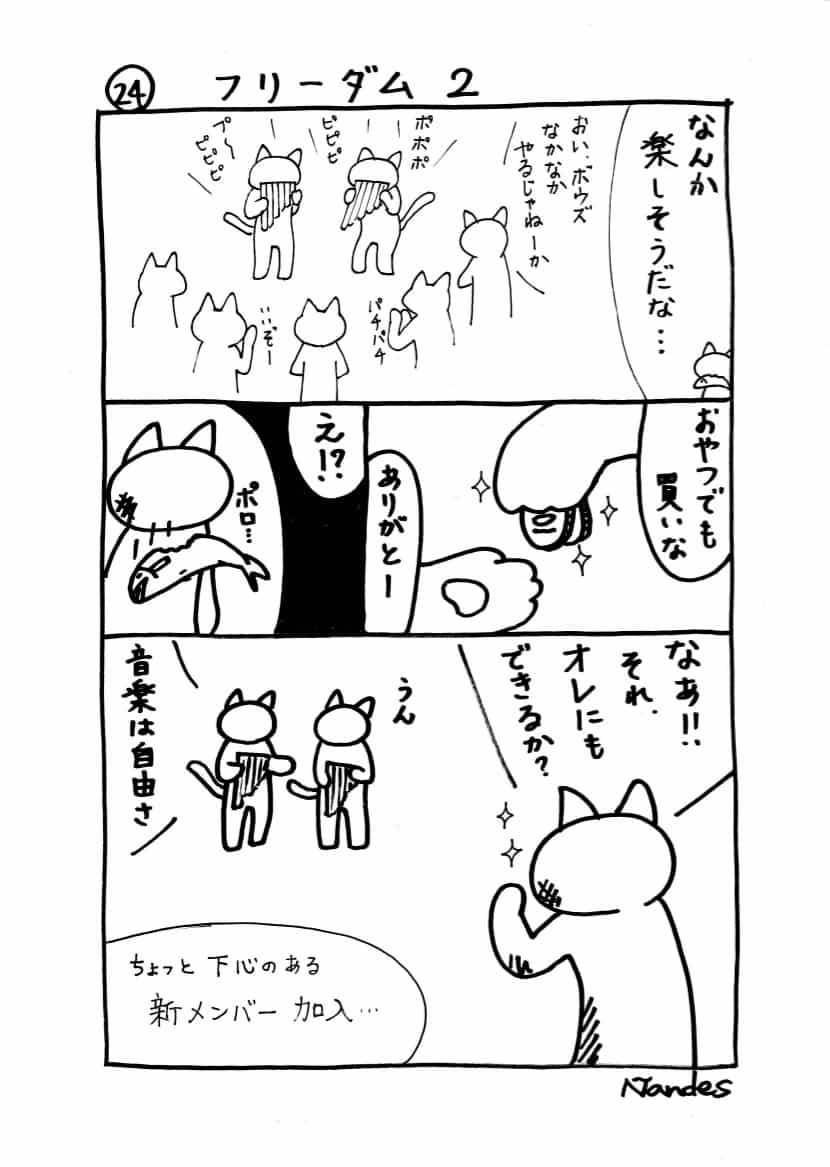 24 フリーダム 2
なんか
楽しそうだな…
おい、ボウズ
なかなか
やるじゃねーか
ポポポ
ピピピ
プ〜
ピピピ
パチパチ
いいぞー
おやつでも
買いな
ありがとー
え!?
ポロ…
なぁ!!
それ、
オレにも
できるか?
うん
音楽は自由さ
ちょっと下心のある
新メンバー 加入…
Nandes